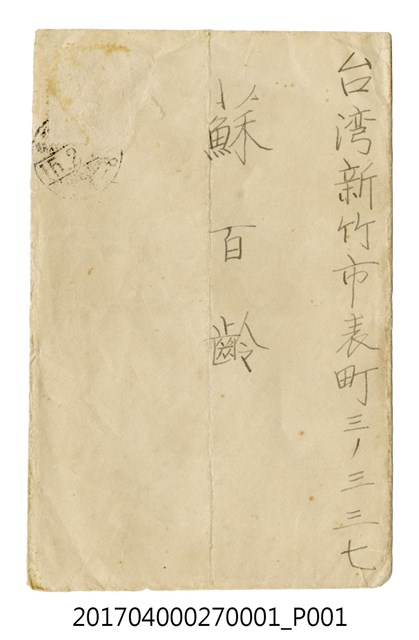 台湾新竹市表町三ノ三三七
蘇百齡
15.2
201704000270001_P001